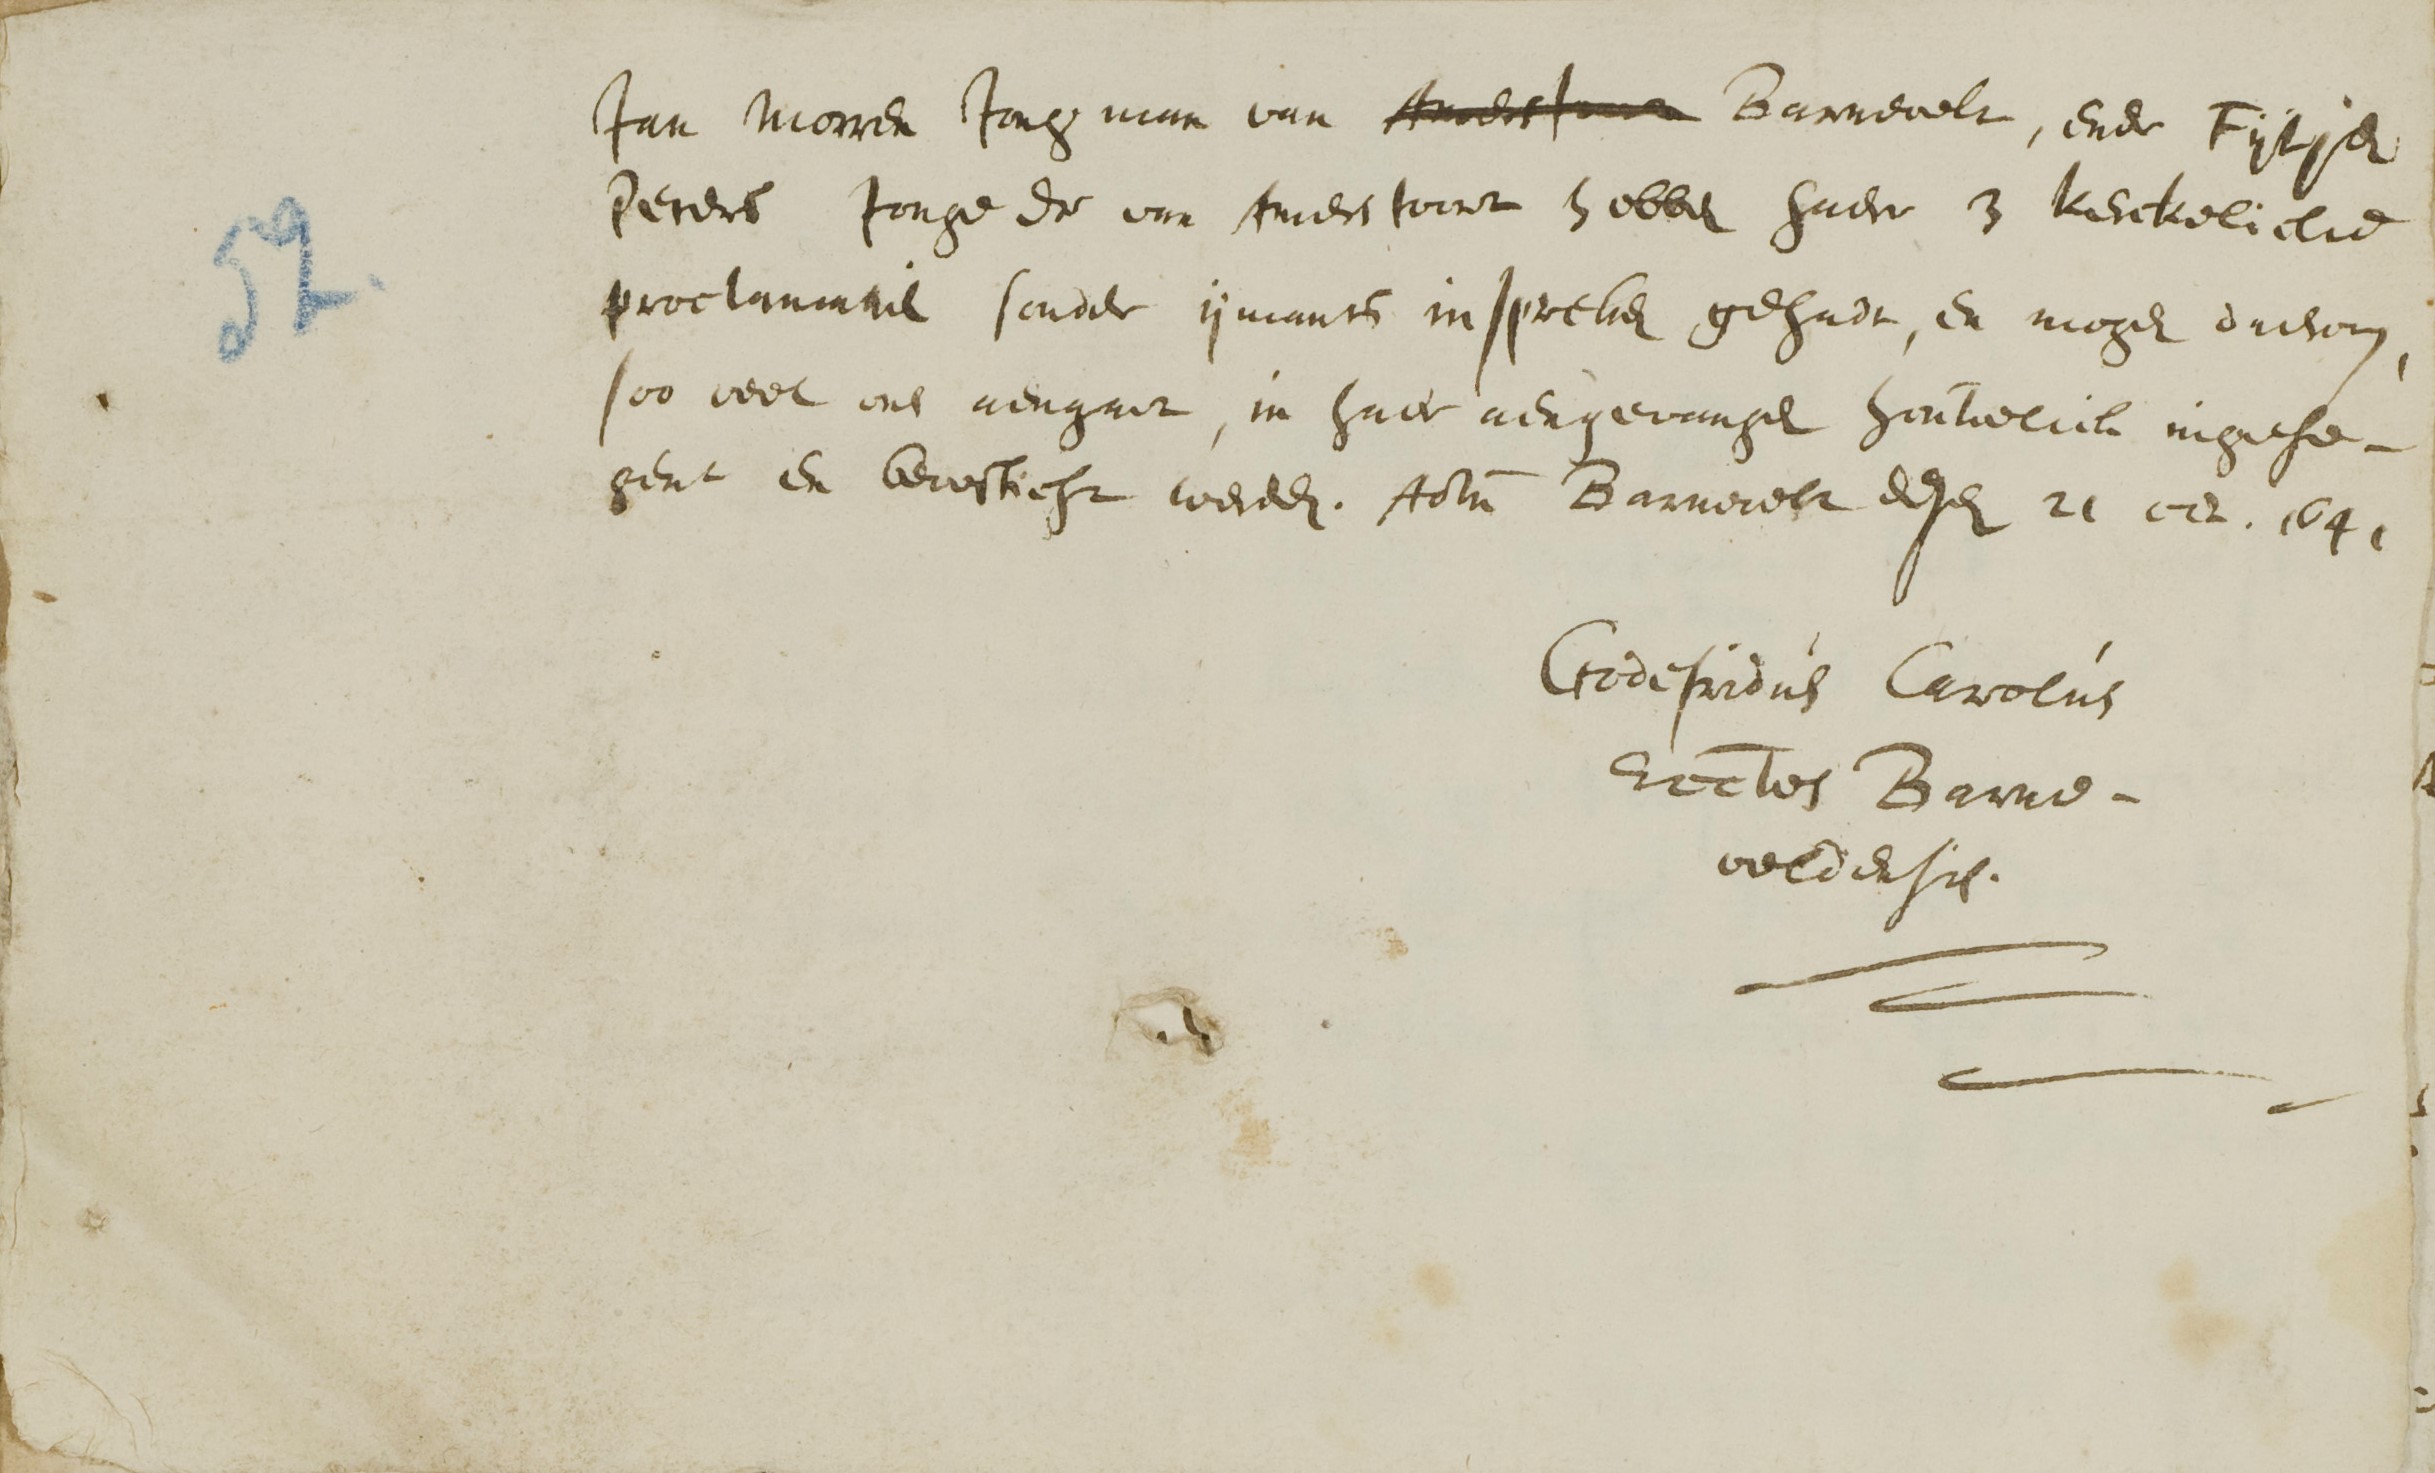 Jan Morren Jongman van Amersfoort Barnevelt, ende Fijtjen
Peters Jonge dr van Amersfoort hebben haere 3 kerckelicke
proclamatien sonder ijmants inspreken gehadt, en mogen daerom,
soo veel ons aengaet, in haer aengevangen houwelick ingese-
gent en bevesticht werden. Actum Barnevelt desen 21 oct. 1641
Godefridus Carolus
Eccles Barne-
veldensis.
52.